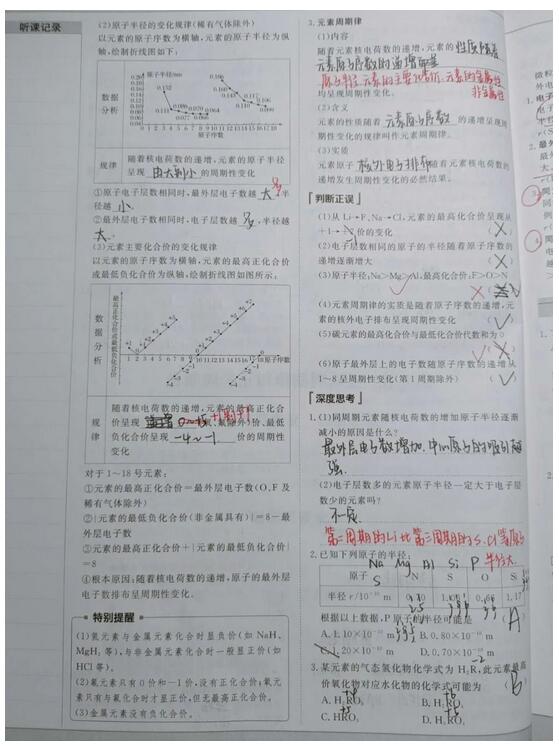 听课记录
(2)原子半径的变化规律(稀有气体除外)
以元素的原子序数为横轴,元素的原子半径为纵
轴,绘制折线图如下:
数据
分析
原子半径/nm
0.152
0.111
0.088
0.077
0.070
0.064
0.186
0.160
0.143
0.117
0.110
0.106
0.109
原子序数
规律
随着核电荷数的递增,元素的原子半径
呈现 由大到小 的周期性变化
①原子电子层数相同时,最外层电子数越 大多,半
径越 小。
②最外层电子数相同时,电子层数越 多,半径越
大。
(3)元素主要化合价的变化规律
以元素的原子序数为横轴,元素的最高正化合价
或最低负化合价为纵轴,绘制折线图如图所示:
数据
分析
最高正化合价或最低负化合价
1 2 3 4 5 6 7 8 9 10 11 12 13 14 15 16 17 18 原子序数
规律
随着核电荷数的递增,元素的最高正化合
价呈现 +1到+7 (氧、氟除外)价、最低
负化合价呈现 -4~-1 价的周期性
变化
对于1~18号元素:
①元素的最高正化合价=最外层电子数(O、F及
稀有气体除外)
②|元素的最低负化合价(非金属具有)|=8-最
外层电子数
③元素的最高正化合价+|元素的最低负化合价|
=8
④根本原因:随着核电荷数的递增,原子的最外层
电子数排布呈现周期性变化。
特别提醒
(1)氢元素与金属元素化合时显负价(如NaH、
MgH₂等),与非金属元素化合时一般显正价(如
HCl等)。
(2)氟元素只有0价和-1价,没有正化合价;氧元
素只有与氟化合时才显正价,但无最高正化合价。
(3)金属元素没有负化合价。
3.元素周期律
(1)内容
随着元素核电荷数的递增,元素的 性质随着
元素原子序数的递增而呈
原子半径、元素的主要化合价、元素的金属性
非金属性
均呈现周期性变化。
(2)含义
元素的性质随着 元素原子序数 的递增呈现周
期性变化的规律叫作元素周期律。
(3)实质
元素原子 核外电子排布 随着元素核电荷数的
递增发生周期性变化的必然结果。
「判断正误」
(1)从Li→F、Na→Cl,元素的最高化合价呈现从
+1→+7价的变化 (×)
(2)电子层数相同的原子的半径随着原子序数的
递增逐渐增大 (×)
(3)原子半径:Na>Mg>Al,最高化合价:F>O>N
(×)
(4)元素周期律的实质是随着原子序数的递增,元
素的核外电子排布呈现周期性变化 (√)
(5)碳元素的最高化合价与最低化合价代数和为0
(√)
(6)原子最外层上的电子数随原子序数的递增从
1~8呈周期性变化(第1周期除外) (√)
「深度思考」
1.(1)同周期元素随核电荷数的增加原子半径逐渐
减小的原因是什么?
最外层电子数增加,中心原子的吸引越
强.
(2)电子层数多的元素原子半径一定大于电子层
数少的元素吗?
不一定.
第二周期的Li比第三周期的S、Cl等原子
半径大.
2.已知下列原子的半径:
Na Mg Al Si P
原子 N S O Si
半径r/10⁻¹⁰ m 0.70 1.06 0.66 1.17
根据以上数据,P原子的半径可能是 (A)
A.1.10×10⁻¹⁰ m B.0.80×10⁻¹⁰ m
C.1.20×10⁻¹⁰ m D.0.70×10⁻¹⁰ m
3.某元素的气态氢化物化学式为H₂R,此元素最高
价氧化物对应水化物的化学式可能为 (B)
A.H₂RO₃ B.H₂RO₄
C.HRO₃ D.H₃RO₄